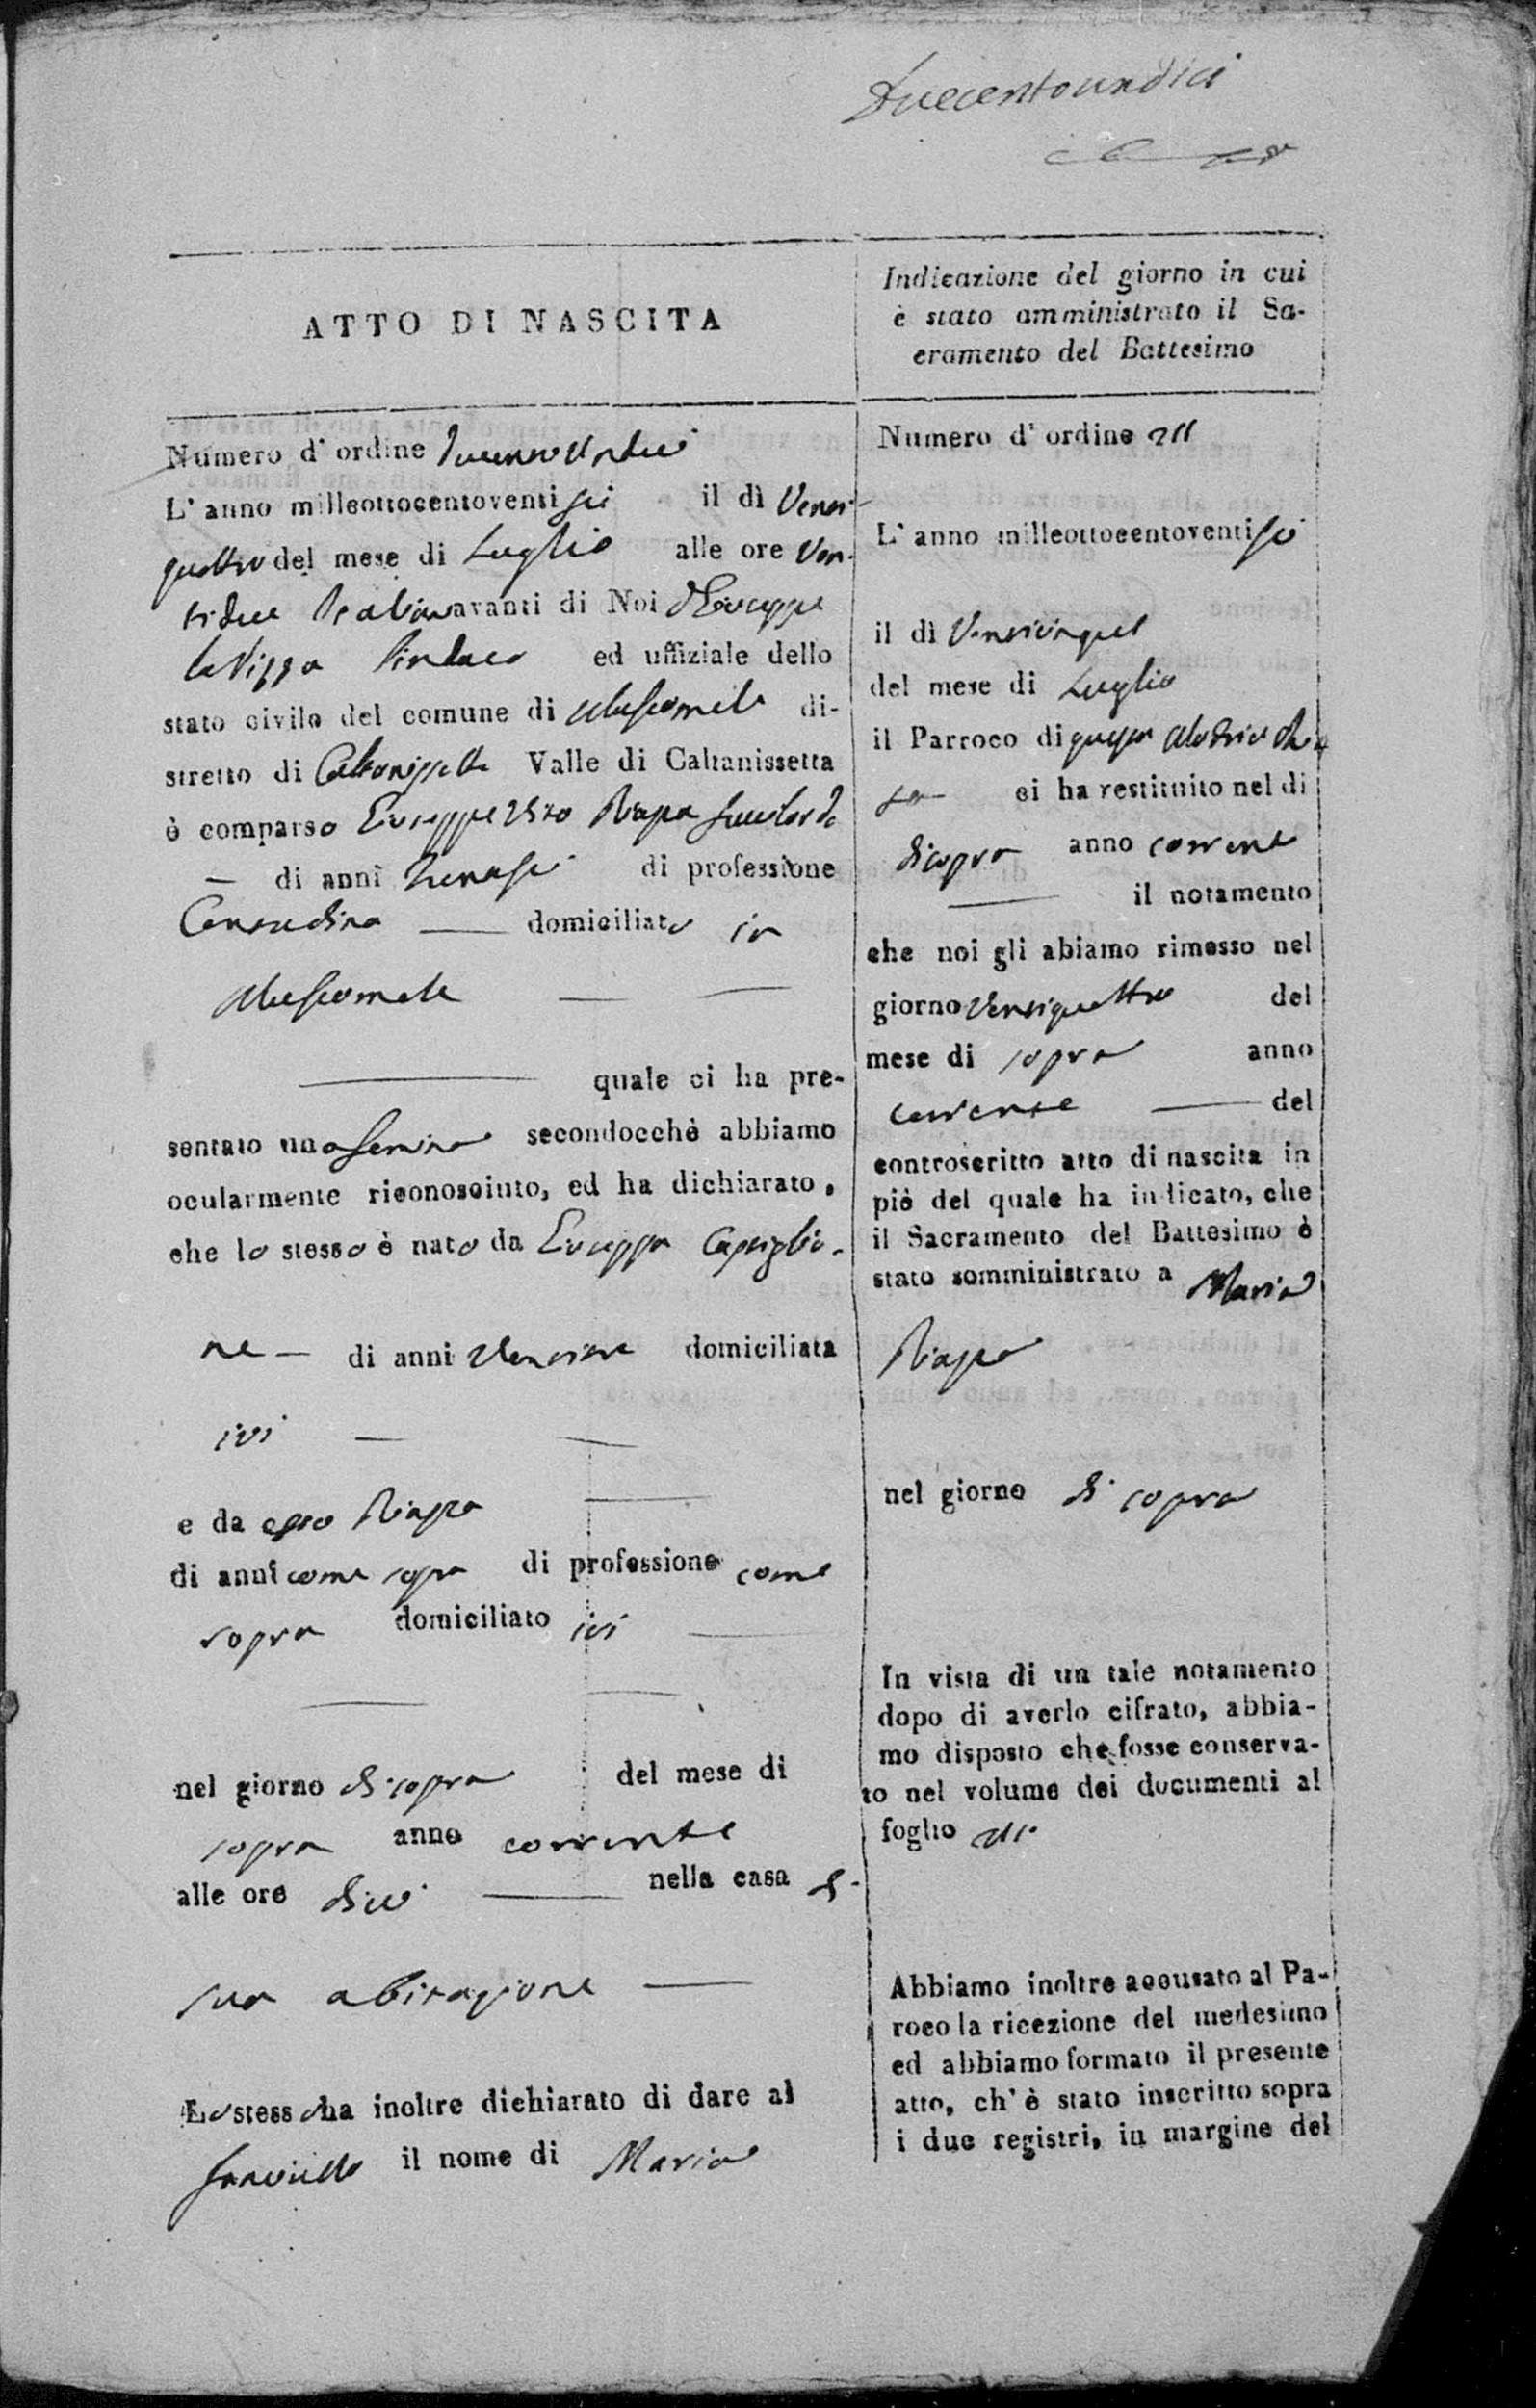 Duecentoundici
ATTO DI NASCITA
Numero d' ordine Duecento Undici
L' anno milleottocentoventi sei il dì Venti
quattro del mese di Luglio alle ore Ven-
tidue Italiane avanti di Noi D Giuseppe
Sindaco ed uffiziale dello
stato civile del comune di Mussomeli di-
stretto di Caltanissetta Valle di Caltanissetta
è comparso Giuseppe Vito Riggio
— di anni Trentasei di professione
Contadino — domiciliato in
Mussomeli — —
— quale ci ha pre-
sentato una femina secondocchè abbiamo
ocularmente riconosciuto, ed ha dichiarato,
che lo stesso è nato da Giuseppa Castiglio-
ne — di anni domiciliata
ivi — —
e da esso Riggio —
di anni come sopra di professione come
sopra domiciliato ivi —
— —
nel giorno di sopra del mese di
sopra anno corrente
alle ore dieci — nella casa di
sua abitazione —
Lo stesso ha inoltre dichiarato di dare al
il nome di Maria
Indicazione del giorno in cui
è stato amministrato il Sa-
cramento del Battesimo
Numero d' ordine 211
L' anno milleottocentoventi sei
il dì Venticinque
del mese di Luglio
il Parroco di questa Madrice Chie-
sa — ci ha restituito nel di
di sopra anno corrente
— il notamento
che noi gli abiamo rimesso nel
giorno Ventiquattro del
mese di sopra anno
corrente — del
controscritto atto di nascita in
piè del quale ha indicato, che
il Sacramento del Battesimo è
stato somministrato a Maria
Riggio
nel giorno di sopra
In vista di un tale notamento
dopo di averlo cifrato, abbia-
mo disposto che fosse conserva-
to nel volume dei documenti al
foglio 211
Abbiamo inoltre accusato al Pa-
roco la ricezione del medesimo
ed abbiamo formato il presente
atto, ch' è stato inscritto sopra
i due registri, in margine del